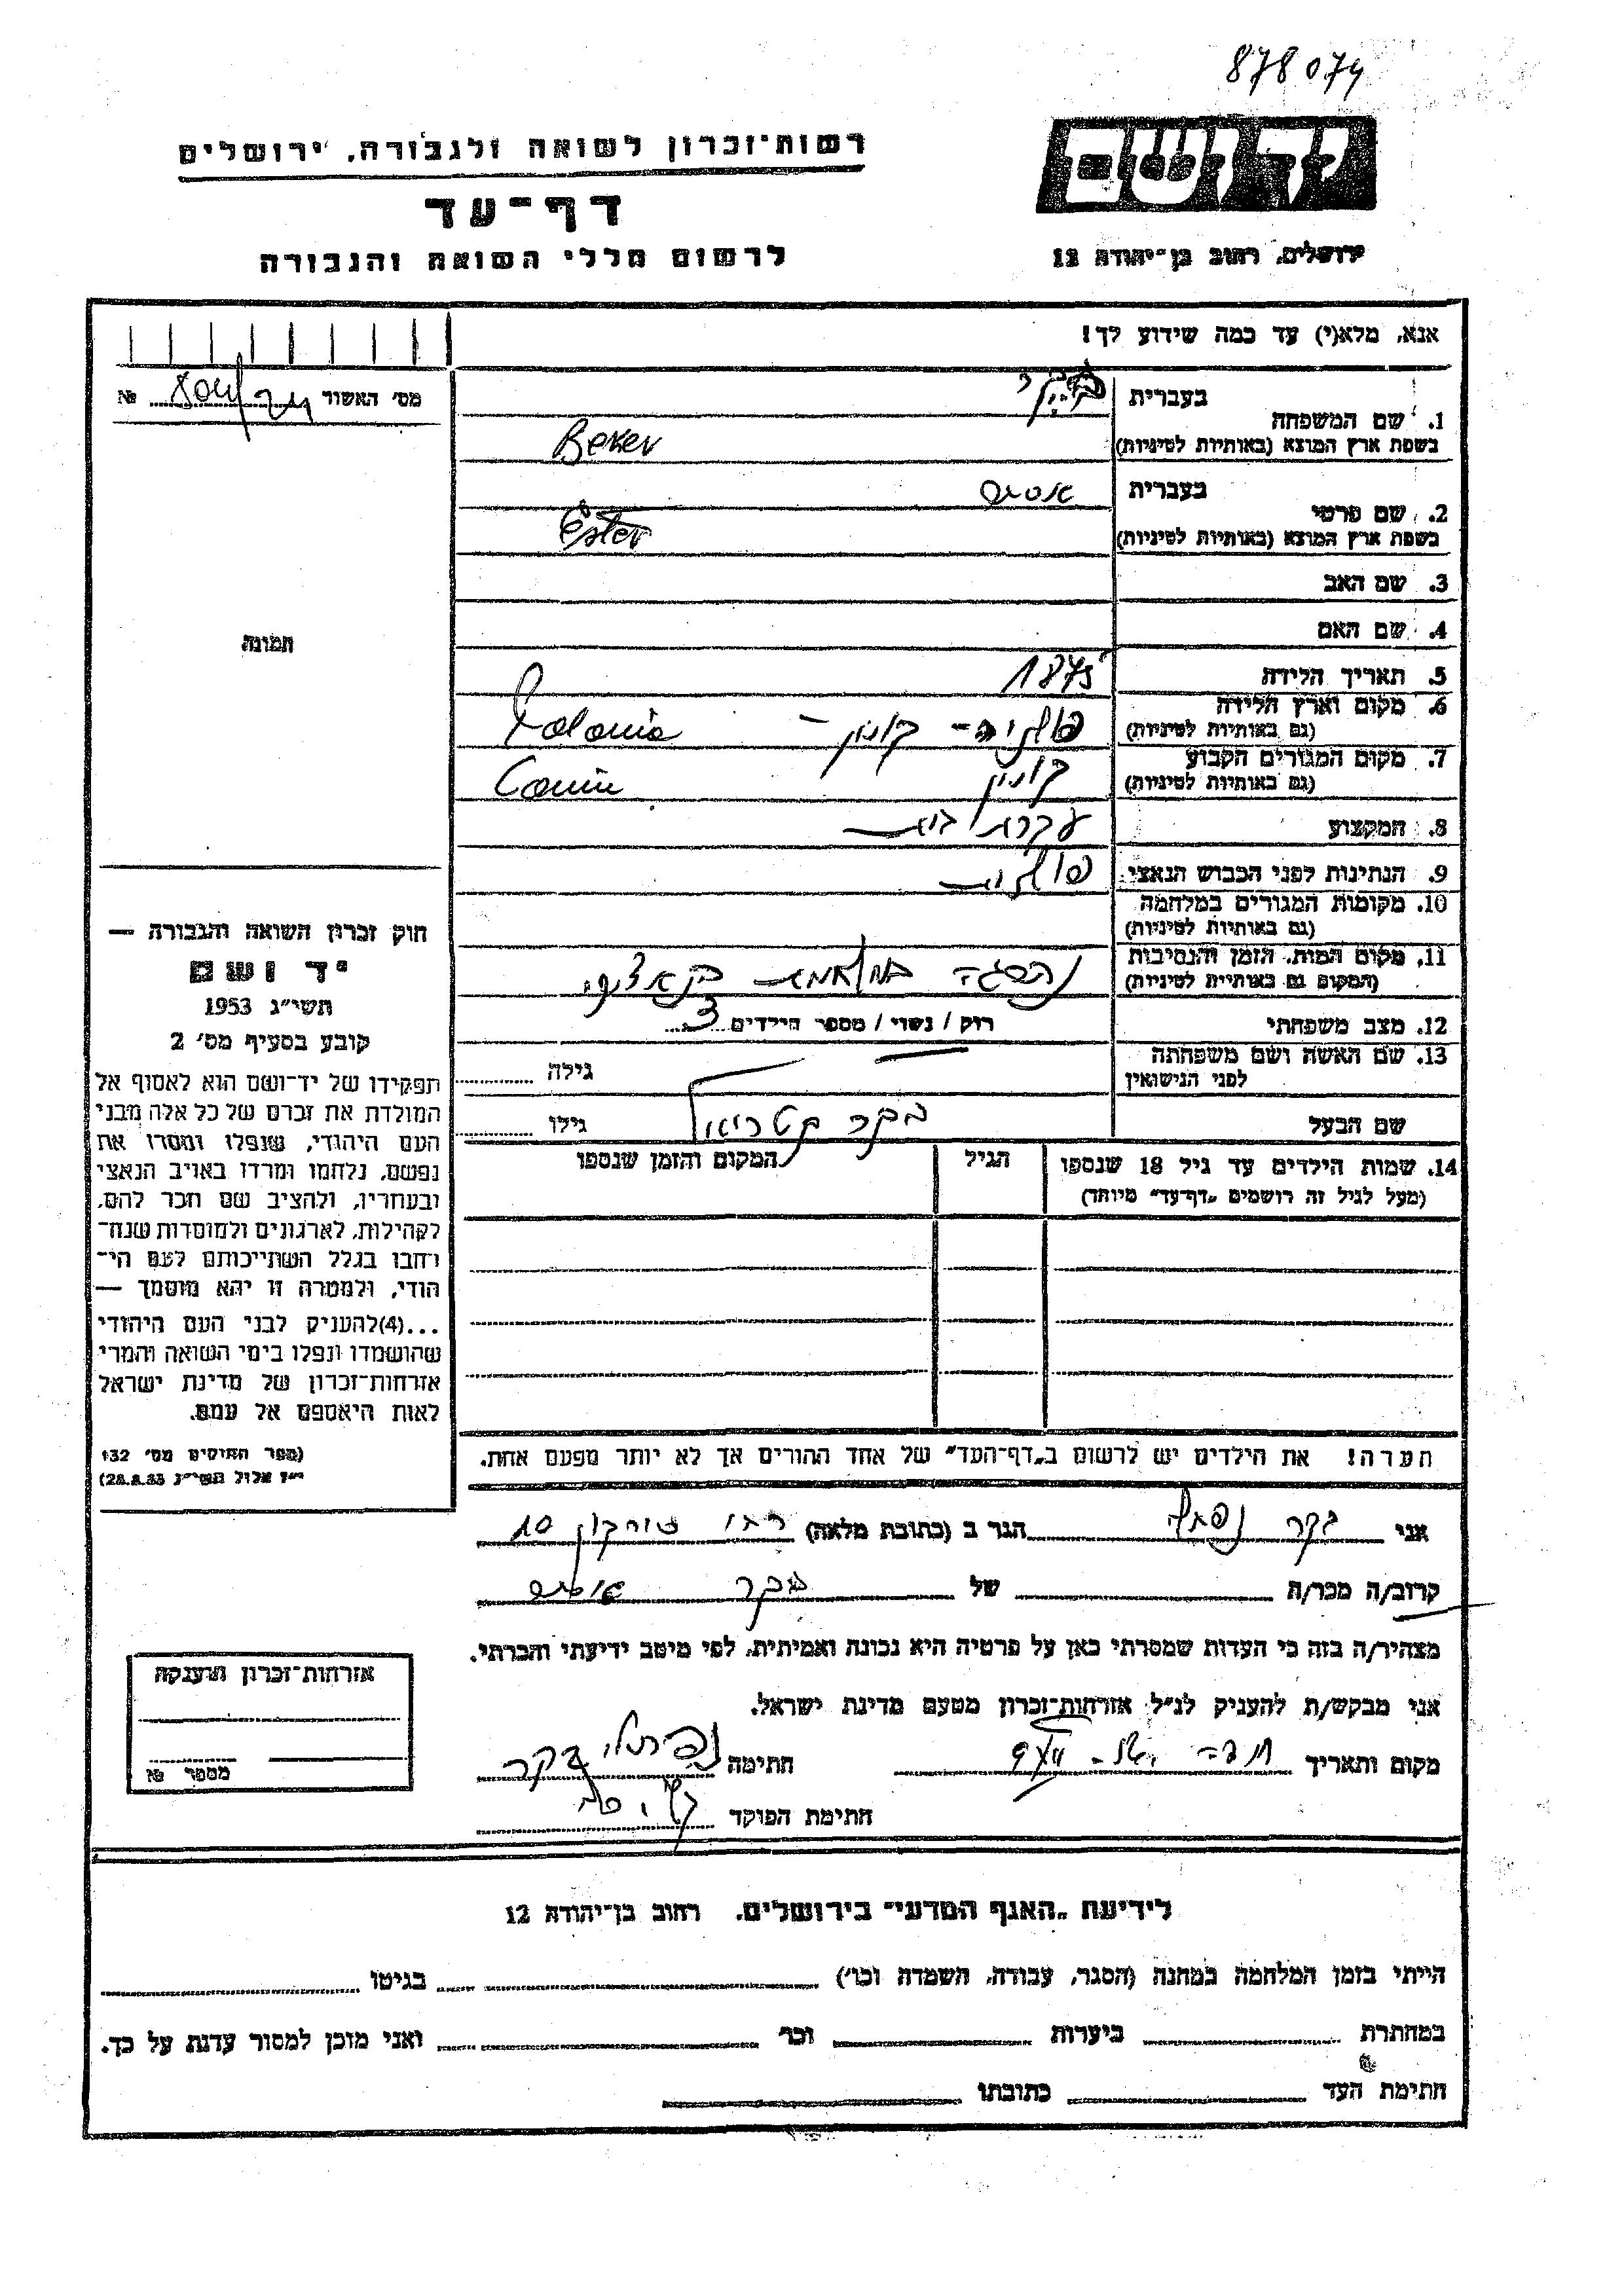 878074
רשות־זכרון לשואה ולגבורה, ירושלים
דף־עד
לרשום חללי השואה והגבורה
יד ושם
ירושלים, רחוב בן־יהודה 12
אנא, מלא(י) עד כמה שידוע לך!
מס׳ האשור №
1. שם המשפחה
בעברית
בשפת ארץ המוצא (באותיות לטיניות) Beker
2. שם פרטי
בעברית אסתר
בשפת ארץ המוצא (באותיות לטיניות) Ester
3. שם האב
4. שם האם
תמונה
5. תאריך הלידה 1875
6. מקום וארץ הלידה
(גם באותיות לטיניות) פולניה - קונין - Polonia
7. מקום המגורים הקבוע
(גם באותיות לטיניות) קונין Conin
8. המקצוע עקרת בית
9. הנתינות לפני הכבוש הנאצי פולנית
10. מקומות המגורים במלחמה
(גם באותיות לטיניות)
11. מקום המות, הזמן והנסיבות
(המקום גם באותיות לטיניות)
12. מצב משפחתי רווק / נשוי / מספר הילדים 3
13. שם האשה ושם משפחתה
לפני הנישואין גילה
שם הבעל בקר גילו
14. שמות הילדים עד גיל 18 שנספו
(מעל לגיל זה רושמים „דף־עד״ מיוחד)
הגיל
המקום והזמן שנספו
הערה! את הילדים יש לרשום ב„דף־העד״ של אחד ההורים אך לא יותר מפעם אחת.
חוק זכרון השואה והגבורה —
יד ושם
תשי״ג 1953
קובע בסעיף מס׳ 2
תפקידו של יד־ושם הוא לאסוף אל
המולדת את זכרם של כל אלה מבני
העם היהודי, שנפלו ומסרו את
נפשם, נלחמו ומרדו באויב הנאצי
ובעוזריו, ולהציב שם וזכר להם,
לקהילות, לארגונים ולמוסדות שנח־
רבו בגלל השתייכותם לעם הי־
הודי, ולמטרה זו יהא מוסמך —
...(4)להעניק לבני העם היהודי
שהושמדו ונפלו בימי השואה והמרי
אזרחות־זכרון של מדינת ישראל
לאות היאספם אל עמם.
(ספר החוקים מס׳ 132
י״ז אלול תשי״ג 28.8.53)
אני בקר נפתלי הגר ב (כתובת מלאה) 10
קרוב/ה מכר/ה של בקר אסתר
מצהיר/ה בזה כי העדות שמסרתי כאן על פרטיה היא נכונה ואמיתית, לפי מיטב ידיעתי והכרתי.
אני מבקש/ת להעניק לנ״ל אזרחות־זכרון מטעם מדינת ישראל.
מקום ותאריך חתימה נפתלי בקר
חתימת הפוקד
אזרחות־זכרון הוענקה
מספר №
לידיעת „האגף המדעי״ בירושלים, רחוב בן־יהודה 12
הייתי בזמן המלחמה במחנה (הסגר, עבודה, השמדה וכו׳) בגיטו
במחתרת ביערות וכו׳ ואני מוכן למסור עדות על כך.
חתימת העד כתובתו